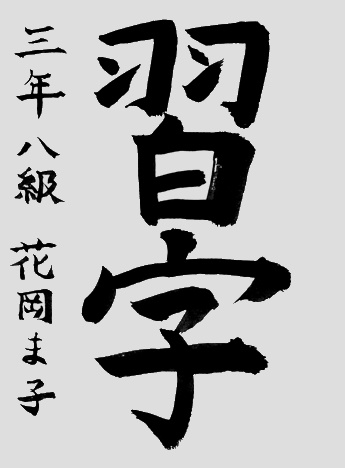 習字
三年 八級 花岡ま子